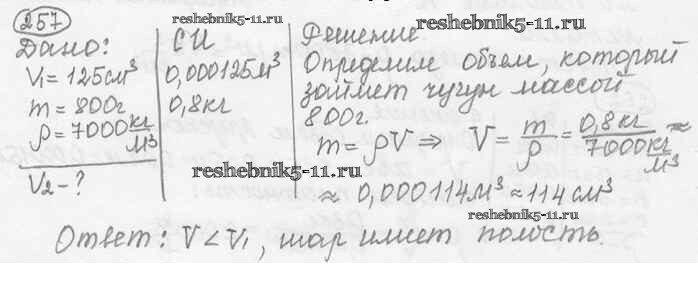 257
reshebnik5-11.ru
reshebnik5-11.ru
Дано:
V₁ = 125 см³
m = 800г
ρ = 7000 кг/м³
V₂ - ?
СИ
0,000125 м³
0,8 кг
Решение
Определим объем, который
займет чугун массой
800г.
m = ρV ⇒ V = m/ρ = 0,8 кг / 7000 кг/м³ ≈
reshebnik5-11.ru
≈ 0,000114 м³ ≈ 114 см³
reshebnik5-11.ru
Ответ: V < V₁, шар имеет полость.